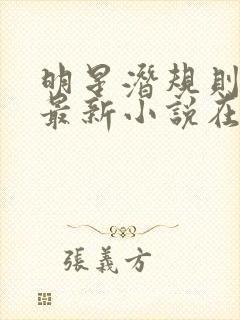 明星潛規則
最新小說在
張義方